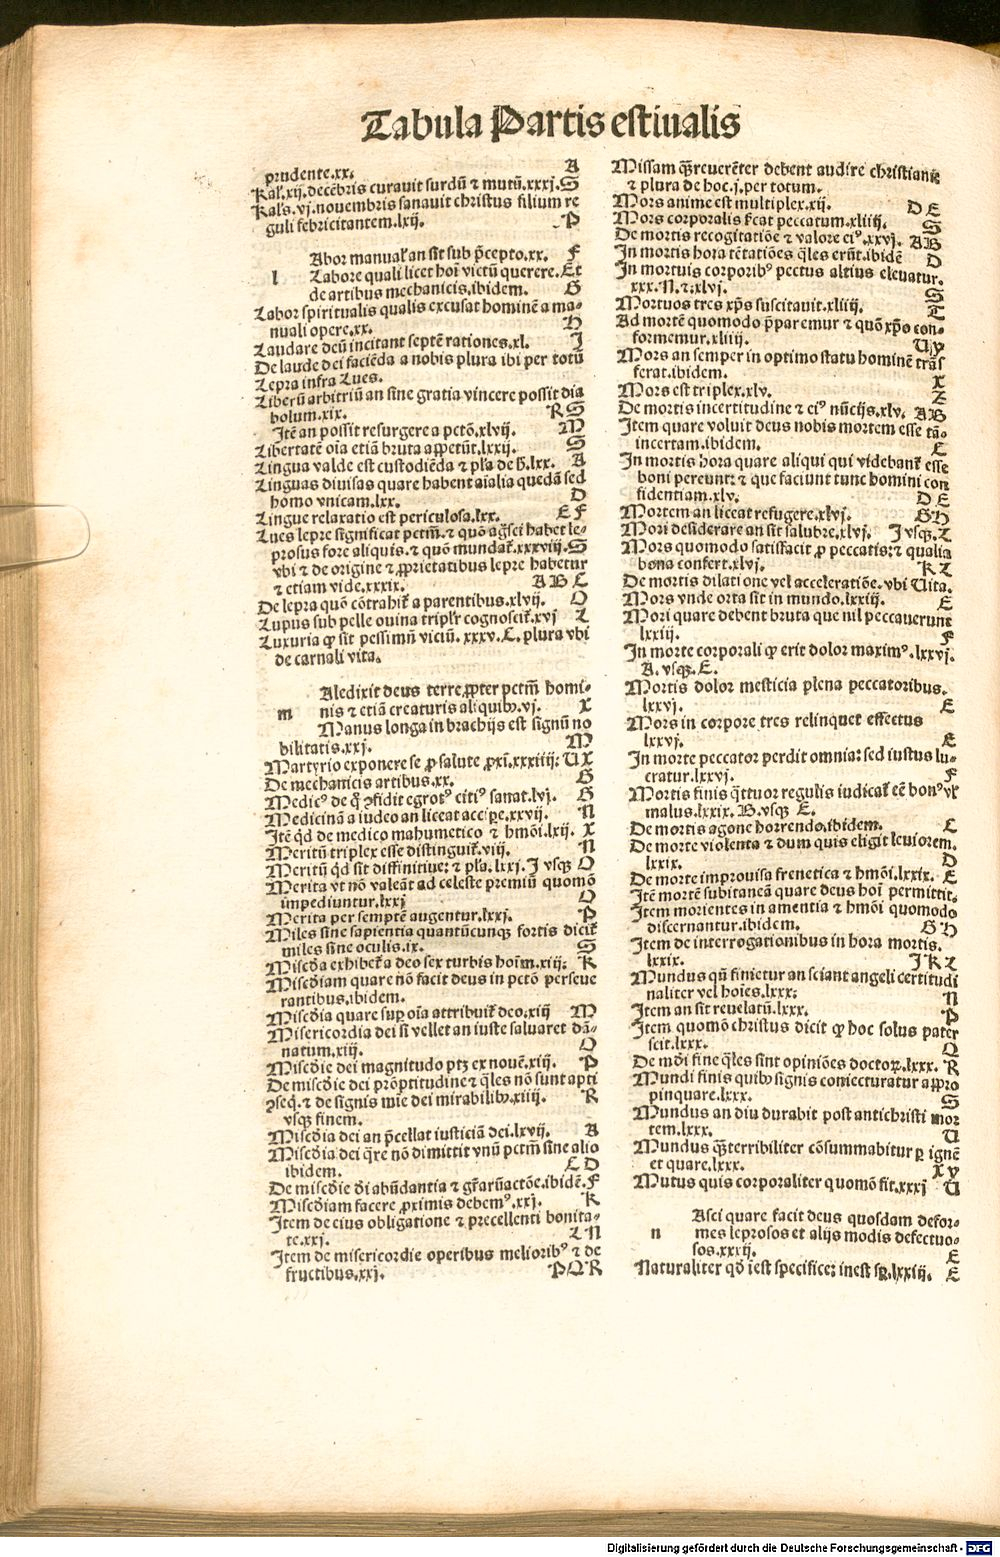 Tabula Partis estiualis
prudente.xx. A
Kal̕.xij.decēbris curauit surdū ⁊ mutū.xxxj.S
Kal̕s.vj.nouembris sanauit christus filium re
guli febricitantem.lxij. P
Abor manual̕ an sit sub p̄cepto.xx. F
l Labore quali licet hoī victū querere.Et
de artibus mechanicis.ibidem. G
Labor spiritualis qualis excusat hominē a ma-
nuali opere.xx. H
Laudare deū incitant septē rationes.xl. J
De laude dei faciēda a nobis plura ibi per totū
Lepra infra Lues.
Liberū arbitriū an sine gratia vincere possit dia
bolum.xix. R S
Itē an possit resurgere a pctō.xlvij. M
Libertatē oīa etiā bruta appetūt.lxxij. S
Lingua valde est custodiēda ⁊ pl̕a de h̄.lxx. A
Linguas diuisas quare habent aīalia quedā sed
homo vnicam.lxx. D
Lingue relaxatio est periculosa.lxx. E F
Lues lepre significat pctm̄.⁊ quō ag̃sci habet le-
prosus fore aliquis.⁊ quō mundat̕.xxxviij.S
vbi ⁊ de origine ⁊ ꝓprietatibus lepre habetur
⁊ etiam vide.xxxix. A B C
De lepra quō cōtrahit̕ a parentibus.xlvij. O
Lupus sub pelle ouina tripl̕r cognoscit̕.xvj L
Luxuria ꝙ sit pessimū viciū.xxxv.C.plura vbi
de carnali vita.
Aledixit deus terre,ꝓpter pctm̄ homi-
m nis ⁊ etiā creaturis aliquibꝰ.vj. X
Manus longa in brachijs est signū no
bilitatis.xxj. M
Martyrio exponere se ꝓ salute ꝓxī.xxxiiij: U X
De mechanicis artibus.xx. G
Medicꝰ de q̄ ꝯfidit egrotꝰ citiꝰ sanat.lvj. G
Medicinā a iudeo an liceat accipe.xxvij. N
Itē qd̕ de medico mahumetico ⁊ hmōi.lxij. X
Meritū triplex esse distinguit̕.viij. N
Meritū qd̕ sit diffinitiue: ⁊ pl̕a.lxxj.J vsqꝫ O
Merita vt nō valeāt ad celeste premiū quomō
impediuntur.lxxj O
Merita per semptē augentur.lxxj. P
Miles sine sapientia quantūcunqꝫ fortis dicit̕
miles sine oculis.ix. S
Misc̄dia exhibet̕ a deo sex turbis hoīm.xij: R
Misc̄diam quare nō facit deus in pctō perseue
rantibus.ibidem.
Misc̄dia quare suꝑ oīa attribuit̕ deo.xiij M
Misericordia dei si vellet an iuste saluaret dā-
natum.xiij. O
Misc̄die dei magnitudo ptꝫ ex nouē.xij. P
De misc̄die dei prōptitudine ⁊ q̄les nō sunt apti
ꝯseq̄.⁊ de signis mīe dei mirabilibꝰ.xiiij. R
vsqꝫ finem.
Misc̄dia dei an p̄cellat iusticiā dei.lvij. A
Misc̄dia dei q̄re nō dimittit vnū pctm̄ sine alio
ibidem. C D
De misc̄die d̄i abūdantia ⁊ gr̄aruactōe.ibidē.F
Misc̄diam facere ꝓximis debemꝰ.xxj. K
Item de eius obligatione ⁊ precellenti bonita-
te.xxj. L N
Item de misericordie operibus melioribꝰ ⁊ de
fructibus.xxj. P Q R
Missam q̄ꝫ reuerēter debent audire christiani:
⁊ plura de hoc.j.per totum.
Mors anime est multiplex.xij. D E
Mors corporalis fcat peccatum.xliiij. S
De mortis recogitatiōe ⁊ valore eiꝰ.xxvj. A B
In mortis hora tētatiōes q̄les erūt.ibidē D
In mortuis corporibꝰ pectus altius eleuatur.
xxx.N.⁊.xlvj. S
Mortuos tres xp̄s suscitauit.xliiij. T
Ad mortē quomodo p̄paremur ⁊ quō xp̄o con-
formemur.xliiij. U y
Mors an semper in optimo statu hominē trās
ferat.ibidem. X
Mors est triplex.xlv. Z
De mortis incertitudine ⁊ eiꝰ nūcijs.xlv. A B
Item quare voluit deus nobis mortem esse tā-
incertam.ibidem. C
In mortis hora quare aliqui qui videbant̕ esse
boni pereunt: ⁊ que faciunt tunc homini con
fidentiam.xlv. D E
Mortem an liceat refugere.xlvj. G H
Mori desiderare an sit salubre.xlvj. J vsqꝫ.L
Mors quomodo satisfacit ꝓ peccatis: ⁊ qualia
bona confert.xlvj. K L
De mortis dilatione vel acceleratiōe.vbi Uita.
Mors vnde orta sit in mundo.lxxiij. E
Mori quare debent bruta que nil peccauerunt
lxxiij. F
In morte corporali ꝙ erit dolor maximꝰ.lxxvj.
A.vsqꝫ.E.
Mortis dolor mesticia plena peccatoribus.
lxxvj. E
Mors in corpore tres relinquet effectus
lxxvj. E
In morte peccator perdit omnia: sed iustus lu-
cratur.lxxvj. F
Mortis finis q̄ttuor regulis iudicat̕ eē bonꝰ vl̕
malus.lxxix.B.vsqꝫ E.
De mortis agone horrendo.ibidem. C
De morte violenta ⁊ dum quis eligit leuiorem.
lxxix. D
De morte improuisa frenetica ⁊ hmōi.lxxix. E
Itē mortē subitaneā quare deus hoī permittit.
Item morientes in amentia ⁊ hmōi quomodo
discernantur.ibidem. G H
Item de interrogationibus in hora mortis.
lxxix. J K L
Mundus qn̄ finietur an sciant angeli certitudi
naliter vel hoīes.lxxx: N
Item an sit reuelatū.lxxx. P
Item quomō christus dicit ꝙ hoc solus pater
scit.lxxx. Q
De mūdi fine q̄les sint opiniōes doctoꝝ.lxxx. R
Mundi finis quibꝰ signis coniecturatur appro
pinquare.lxxx. S
Mundus an diu durabit post antichristi mor
tem.lxxx. U
Mundus q̄ꝫ terribiliter cōsummabitur ꝑ ignē
et quare.lxxx. X y
Mutus quis corporaliter quomō fit.xxxj U
Asci quare facit deus quosdam defor-
n mes leprosos et alijs modis defectuo-
sos.xxxij. E
Naturaliter qd̕ iest specifice: inest sꝑ.lxxiij. E
Digitalisierung gefördert durch die Deutsche Forschungsgemeinschaft - DFG